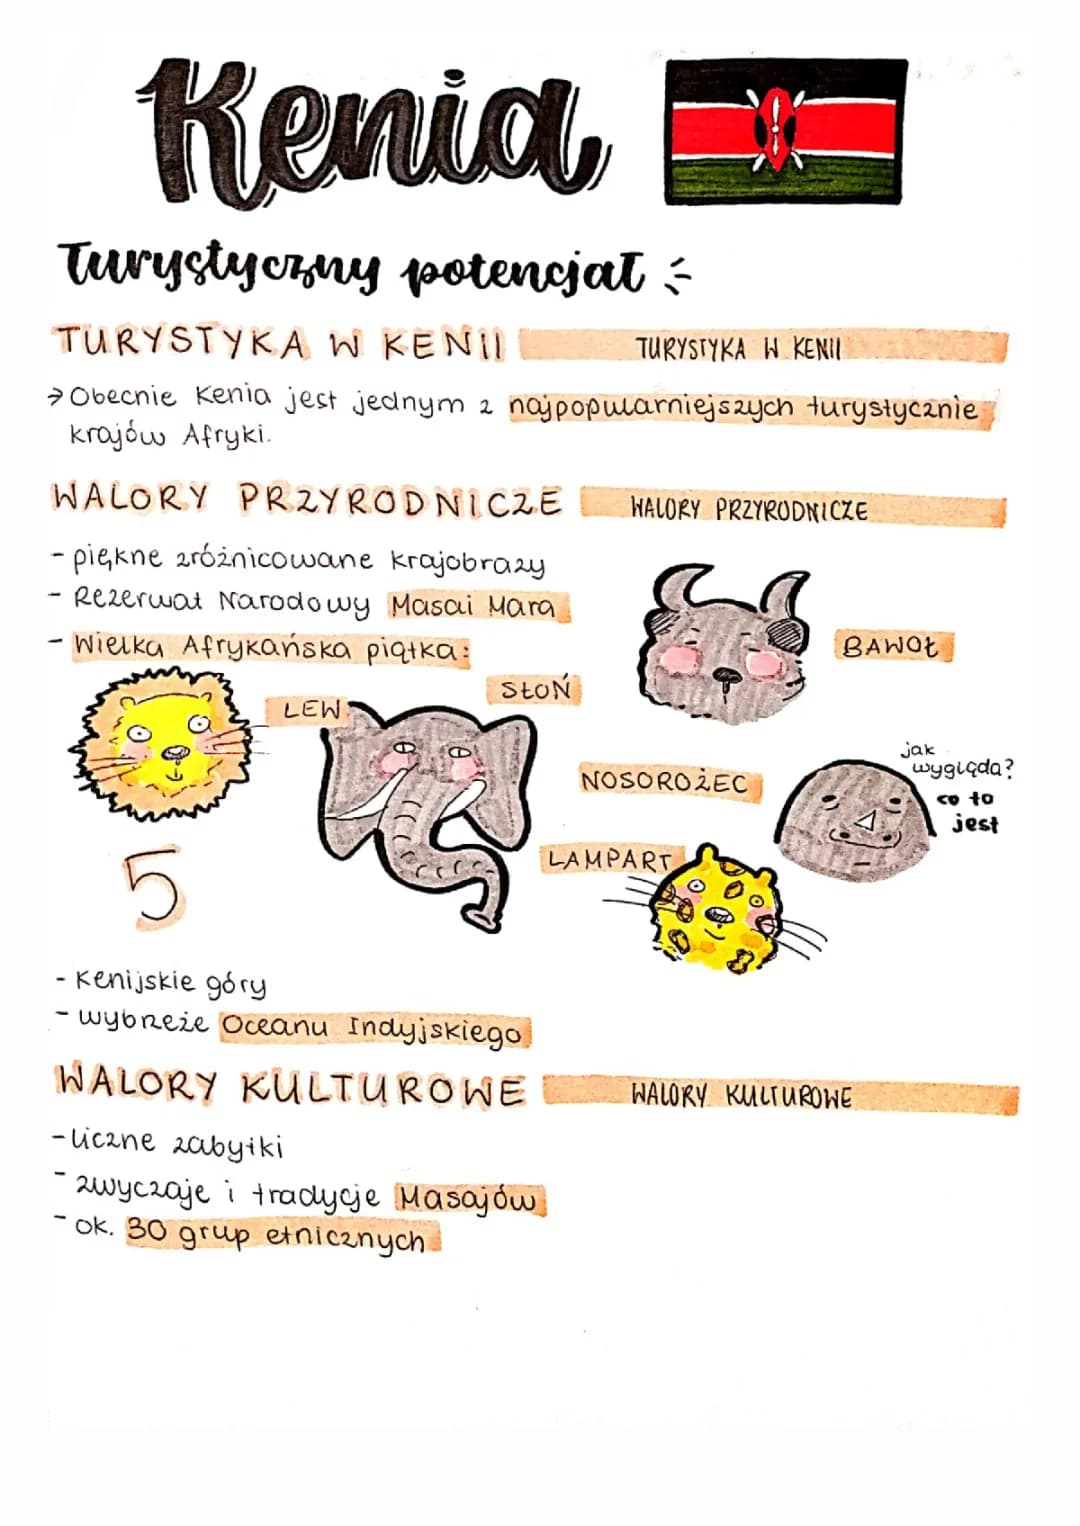 Kenia
Turystyczny potencjał
TURYSTYKA W KENII
TURYSTYKA W KENII
→ Obecnie Kenia jest jednym z najpopularniejszych turystycznie
krajów Afryki.
WALORY PRZYRODNICZE
WALORY PRZYRODNICZE
- piękne zróżnicowane krajobrazy
- Rezerwat Narodowy Masai Mara
- Wielka Afrykańska piątka:
BAWÓŁ
SŁOŃ
LEW
jak
wygląda?
NOSOROŻEC
co to
jest
LAMPART
5
- Kenijskie góry
- wybrzeże Oceanu Indyjskiego
WALORY KULTUROWE
WALORY KULTUROWE
- liczne zabytki
- zwyczaje i tradycje Masajów
- ok. 30 grup etnicznych